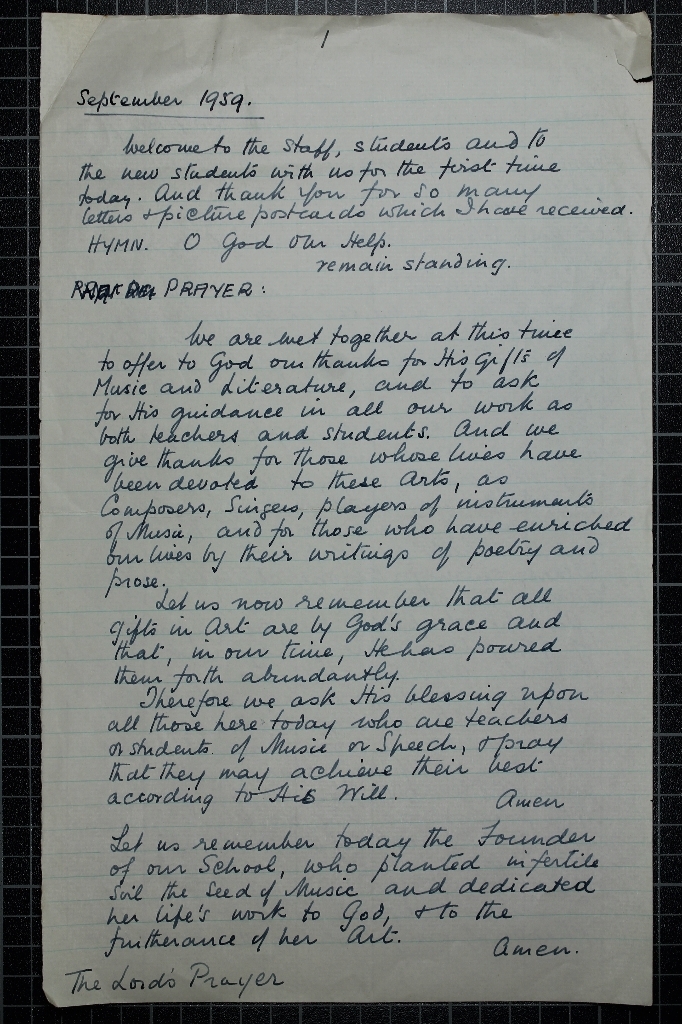 1
September 1959.
Welcome to the Staff, students and to
the new students with us for the first time
today. And thank you for so many
letters & picture postcards which I have received.
HYMN. O God Our Help.
remain standing.
PRAYER:
We are met together at this time
to offer to God our thanks for His Gifts of
Music and Literature, and to ask
for His guidance in all our work as
both teachers and students. And we
give thanks for those whose lives have
been devoted to these Arts, as
Composers, Singers, players of instruments
of Music, and for those who have enriched
our lives by their writings of poetry and
prose.
Let us now remember that all
gifts in Art are by God's grace and
that, in our time, He has poured
them forth abundantly.
Therefore we ask His blessing upon
all those here today who are teachers
or students of Music or Speech, & pray
that they may achieve their best
according to His Will. Amen
Let us remember today the Founder
of our School, who planted in fertile
soil the seed of Music and dedicated
her life's work to God, & to the
furtherance of her Art. Amen.
The Lord's Prayer